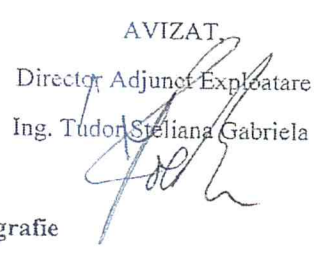 AVIZAT,
Director Adjunct Exploatare
Ing. Tudor Steliana Gabriela
grafie